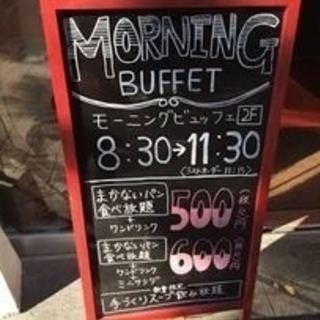 MORNING
BUFFET
モーニングビュッフェ 2F
8:30→11:30
(ラストオーダー 11:15)
まかないパン
食べ放題
+
ワンドリンク
500
まかないパン
食べ放題
+
ワンドリンク
ミニサラダ
600
数量限定
手づくりスープ飲み放題